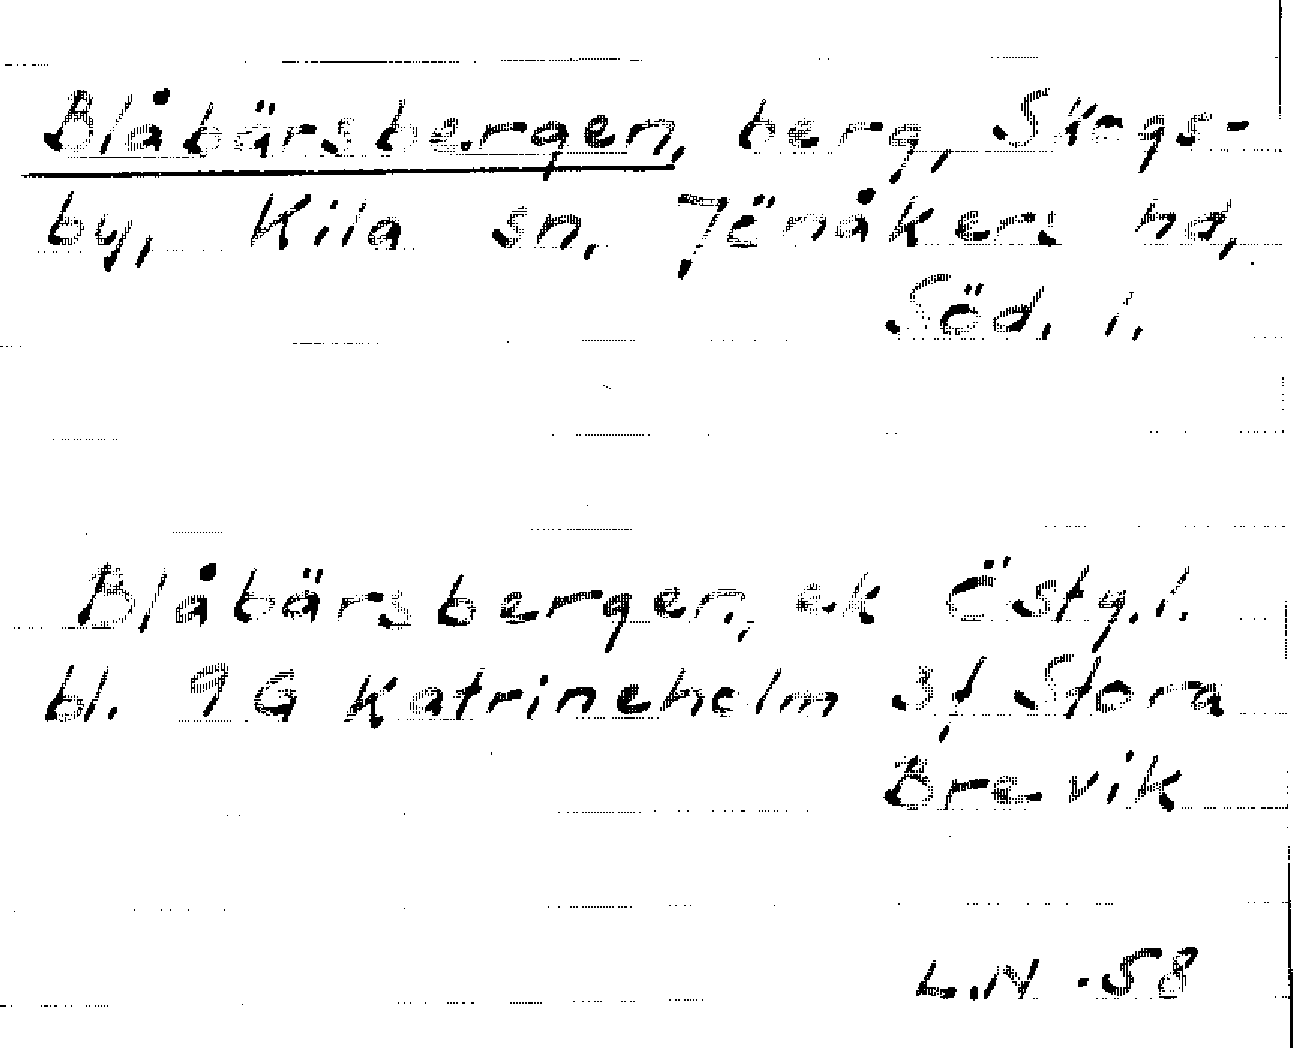 Blåbärsbergen, berg, Sängs-
by, Kila sn. Jönåkers hd,
Söd. l.
Blåbärsbergen, ek Östg. l.
bl. 9G Katrineholm 3f Stora
Brevik
L.N -58